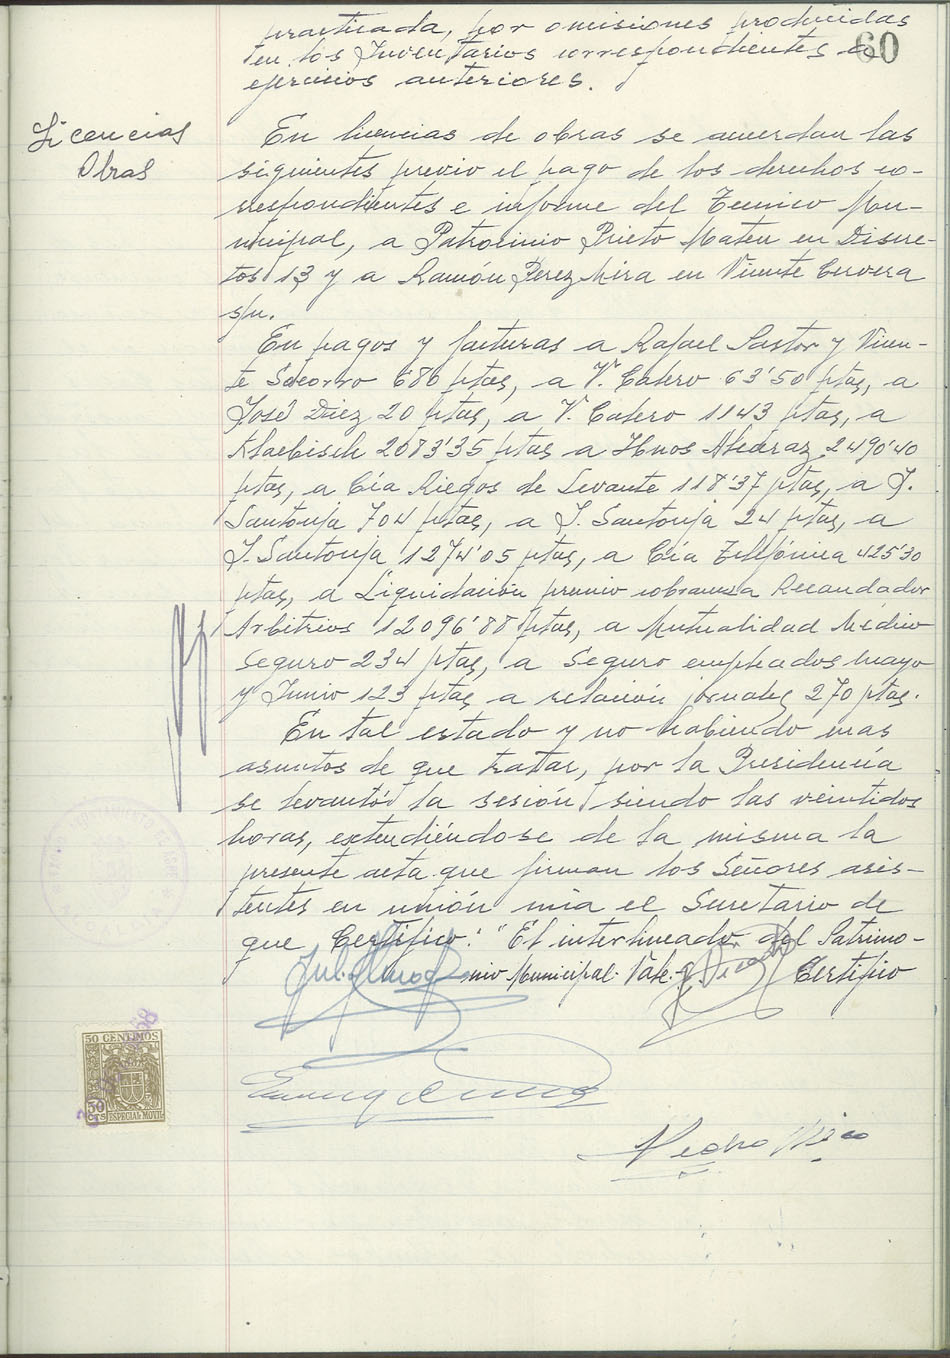 practicada, por omisiones producidas
en los Inventarios correspondientes a
ejercicios anteriores.
60
Licencias
Obras
En licencias de obras se acuerdan las
siguientes previo el pago de los derechos co-
rrespondientes e informe del Tecnico Mu-
nicipal, a Patrocinio Prieto Mateu en Discre-
tos 13 y a Ramón Perez Mira en Vicente Cervera
s/n.
En pagos y facturas a Rafael Pastor y Vicen-
te Socorro 686 ptas, a V. Catero 63'50 ptas, a
José Diez 20 ptas, a V. Catero 1143 ptas, a
Klaebisch 2083'35 ptas a Hnos Alcaraz 2490'40
ptas, a Cía Riegos de Levante 118'37 ptas, a J.
Santonja 704 ptas, a J. Santonja 24 ptas, a
J. Santonja 1274'05 ptas, a Cía Telefónica 425'30
ptas, a Liquidación premio cobranza Recaudador
Arbitrios 12096'88 ptas, a Mutualidad Médico
Seguro 234 ptas, a Seguro empleados mayo
y Junio 123 ptas a relación jornales 270 ptas.
En tal estado y no habiendo mas
asuntos de que tratar, por la Presidencia
se levantó la sesión siendo las veintidos
horas, extendiéndose de la misma la
presente acta que firman los Señores asis-
tentes en unión mia el Secretario de
que Certifico." "El interlineado del Patrimo-
nio Municipal. Vale. Certifico
ALCALDIA
50 CENTIMOS
50
CTS
ESPECIAL MOVIL
Pedro Mira